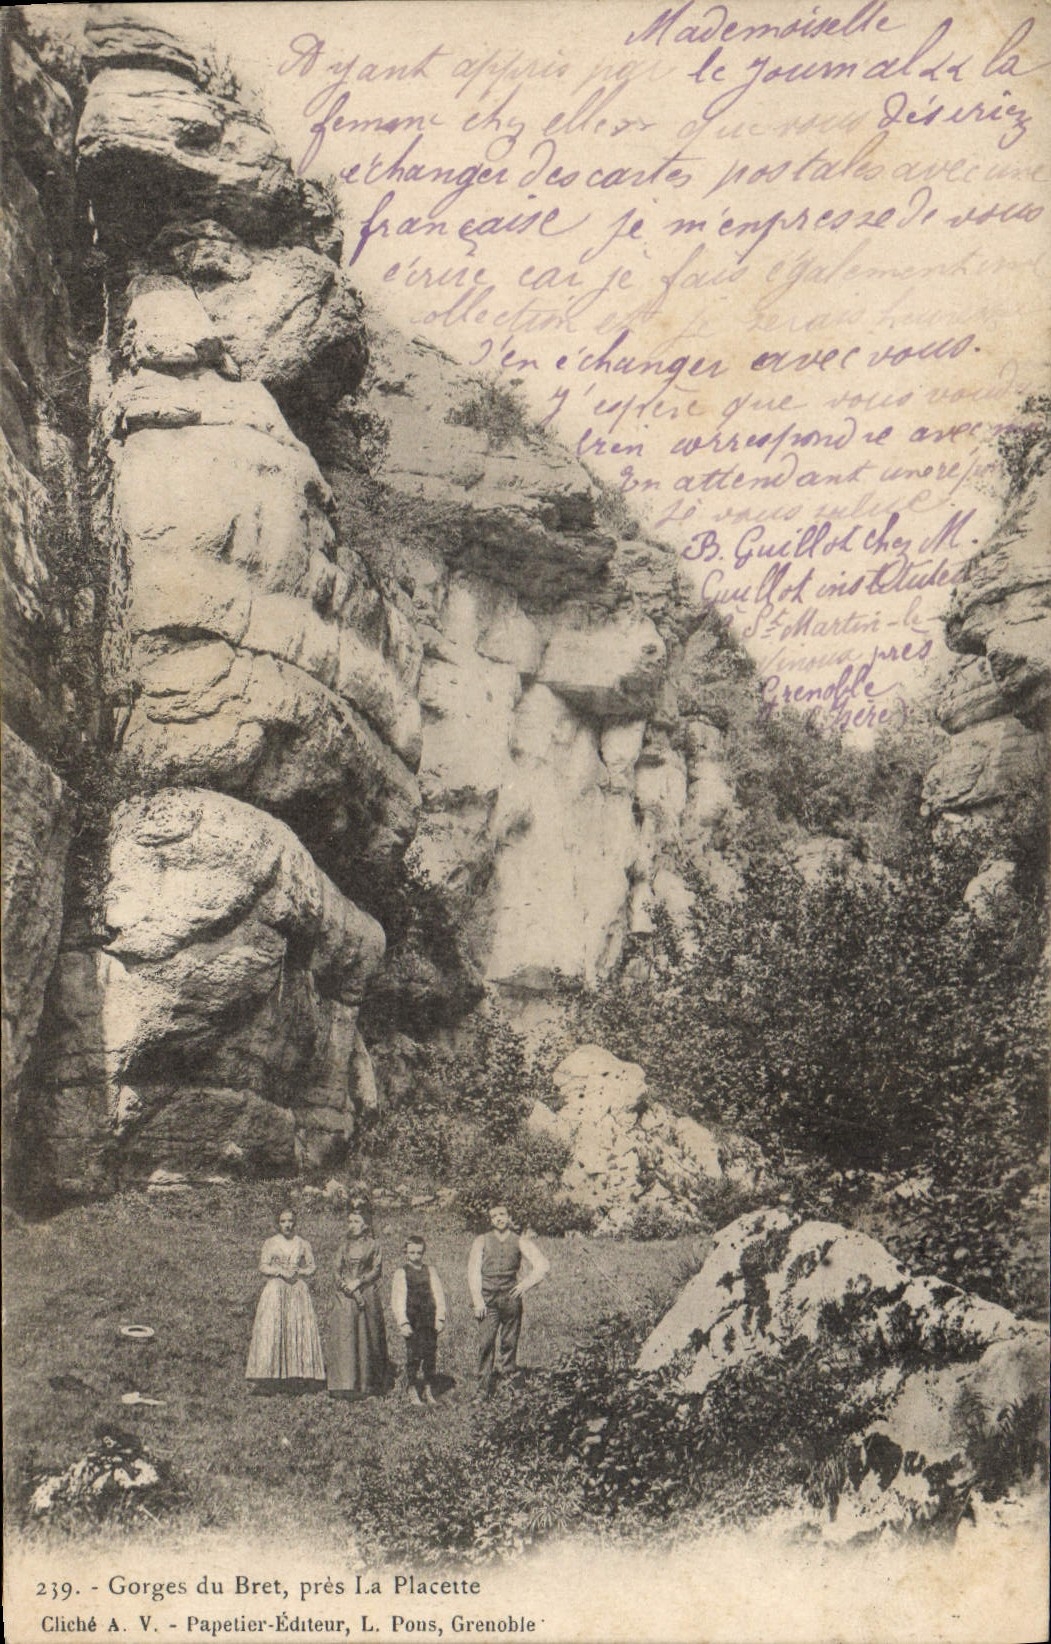 Mademoiselle
Ayant appris par le journal << la
femme chez elle >> que vous désiriez
échanger des cartes postales avec une
française je m'enpresse de vous
écrire car je fais également une
collection et je serais heureuse
d'en échanger avec vous.
J'espère que vous voud
rrien correspondre avec moi
En attendant une réponse
je vous salue.
B. Guillot chez M.
Guillot instituteur
à St Martin-le-
Vinoux près
Grenoble
(Isère)
239. - Gorges du Bret, près La Placette
Cliché A. V. - Papetier-Éditeur, L. Pons, Grenoble